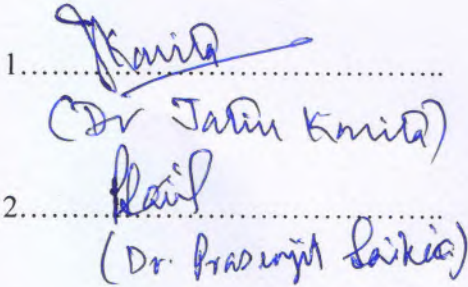 1..........................................
(Dr Jatin Konità)
2..........................................
(Dr. Prasenjit Saikia)